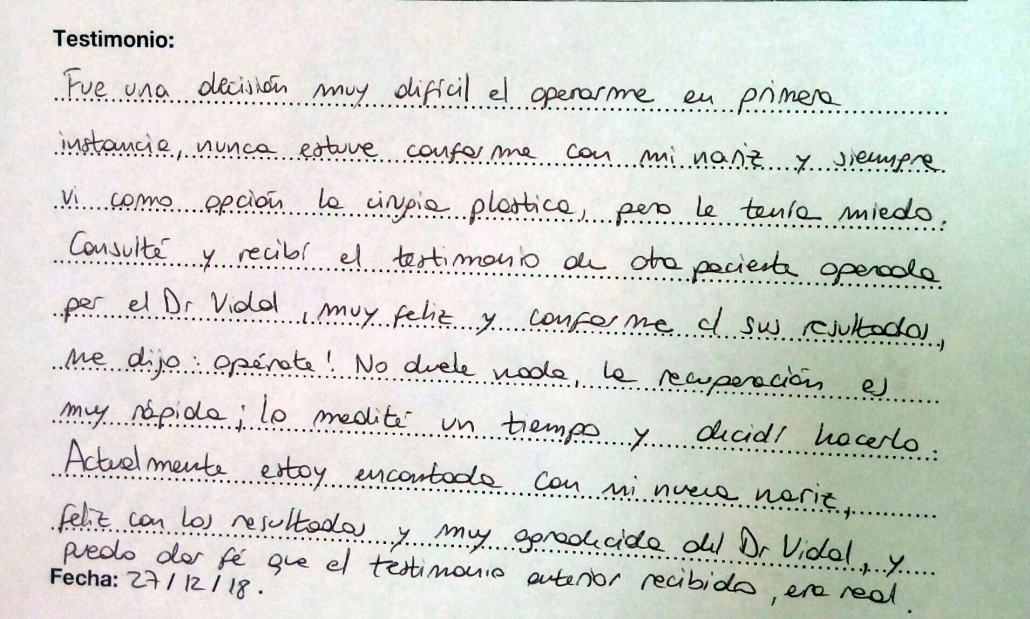 Testimonio:
Fue una decisión muy difícil el operarme en primera
instancia, nunca estuve conforme con mi nariz y siempre
vi como opción la cirugia plastica, pero le tenía miedo.
Consulté y recibí el testimonio de otra paciente operada
por el Dr Vidal, muy feliz y conforme c/ sus resultados,
me dijo: opérate! No duele nada, la recuperación es
muy rápida; lo medité un tiempo y decidí hacerlo.
Actualmente estoy encantada con mi nueva nariz,
feliz con los resultados y muy agradecida del Dr Vidal, y
puedo dar fé que el testimonio anterior recibido, era real.
Fecha: 27/12/18.